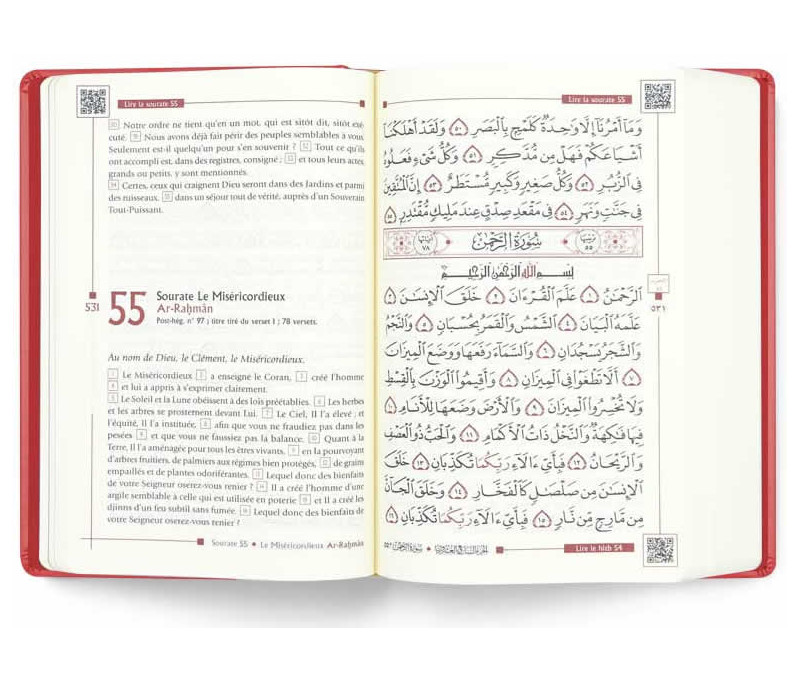 Lire la sourate 55
50 Notre ordre ne tient qu'en un mot, qui est sitôt dit, sitôt exé-
cuté. 51 Nous avons déjà fait périr des peuples semblables à vous.
Seulement est-il quelqu'un pour s'en souvenir ? 52 Tout ce qu'ils
ont accompli est, dans des registres, consigné ; 53 et tous leurs actes,
grands ou petits, y sont mentionnés.
54 Certes, ceux qui craignent Dieu seront dans des Jardins et parmi
des ruisseaux, 55 dans un séjour tout de vérité, auprès d'un Souverain
Tout-Puissant.
531
55
Sourate Le Miséricordieux
Ar-Raḥmân
Post-hég. n° 97 ; titre tiré du verset 1 ; 78 versets.
Au nom de Dieu, le Clément, le Miséricordieux.
1 Le Miséricordieux 2 a enseigné le Coran, 3 créé l'homme
4 et lui a appris à s'exprimer clairement.
5 Le Soleil et la Lune obéissent à des lois préétablies. 6 Les herbes
et les arbres se prosternent devant Lui. 7 Le Ciel, Il l'a élevé ; et
l'équité, Il l'a instituée, 8 afin que vous ne fraudiez pas dans les
pesées 9 et que vous ne faussiez pas la balance. 10 Quant à la
Terre, Il l'a aménagée pour tous les êtres vivants, 11 en la pourvoyant
d'arbres fruitiers, de palmiers aux régimes bien protégés, 12 de grains
empaillés et de plantes odoriférantes. 13 Lequel donc des bienfaits
de votre Seigneur oserez-vous renier ? 14 Il a créé l'homme d'une
argile semblable à celle qui est utilisée en poterie 15 et Il a créé les
djinns d'un feu subtil sans fumée. 16 Lequel donc des bienfaits de
votre Seigneur oserez-vous renier ?
Sourate 55 • Le Miséricordieux Ar-Raḥmân
Lire la sourate 55
وَمَآ أَمْرُنَآ إِلَّا وَٰحِدَةٌ كَلَمْحٍۭ بِٱلْبَصَرِ ٥٠ وَلَقَدْ أَهْلَكْنَآ
أَشْيَاعَكُمْ فَهَلْ مِن مُّدَّكِرٍ ٥١ وَكُلُّ شَىْءٍ فَعَلُوهُ
فِى ٱلزُّبُرِ ٥٢ وَكُلُّ صَغِيرٍ وَكَبِيرٍ مُّسْتَطَرٌ ٥٣ إِنَّ ٱلْمُتَّقِينَ
فِى جَنَّٰتٍ وَنَهَرٍ ٥٤ فِى مَقْعَدِ صِدْقٍ عِندَ مَلِيكٍ مُّقْتَدِرٍۭ ٥٥
ترتيبها ٥٥ سُورَةُ الرَّحْمَٰن آياتها ٧٨
بِسْمِ ٱللَّهِ ٱلرَّحْمَٰنِ ٱلرَّحِيمِ
ٱلرَّحْمَٰنُ ١ عَلَّمَ ٱلْقُرْءَانَ ٢ خَلَقَ ٱلْإِنسَٰنَ ٣
عَلَّمَهُ ٱلْبَيَانَ ٤ ٱلشَّمْسُ وَٱلْقَمَرُ بِحُسْبَانٍ ٥ وَٱلنَّجْمُ
وَٱلشَّجَرُ يَسْجُدَانِ ٦ وَٱلسَّمَآءَ رَفَعَهَا وَوَضَعَ ٱلْمِيزَانَ
٧ أَلَّا تَطْغَوْا۟ فِى ٱلْمِيزَانِ ٨ وَأَقِيمُوا۟ ٱلْوَزْنَ بِٱلْقِسْطِ
وَلَا تُخْسِرُوا۟ ٱلْمِيزَانَ ٩ وَٱلْأَرْضَ وَضَعَهَا لِلْأَنَامِ ١٠
فِيهَا فَٰكِهَةٌ وَٱلنَّخْلُ ذَاتُ ٱلْأَكْمَامِ ١١ وَٱلْحَبُّ ذُو ٱلْعَصْفِ
وَٱلرَّيْحَانُ ١٢ فَبِأَىِّ ءَالَآءِ رَبِّكُمَا تُكَذِّبَانِ ١٣ خَلَقَ
ٱلْإِنسَٰنَ مِن صَلْصَٰلٍ كَٱلْفَخَّارِ ١٤ وَخَلَقَ ٱلْجَآنَّ
مِن مَّارِجٍ مِّن نَّارٍ ١٥ فَبِأَىِّ ءَالَآءِ رَبِّكُمَا تُكَذِّبَانِ ١٦
٥٣١
الجزء السابع والعشرون • سورة الرحمن ٥٥
Lire le hizb 54